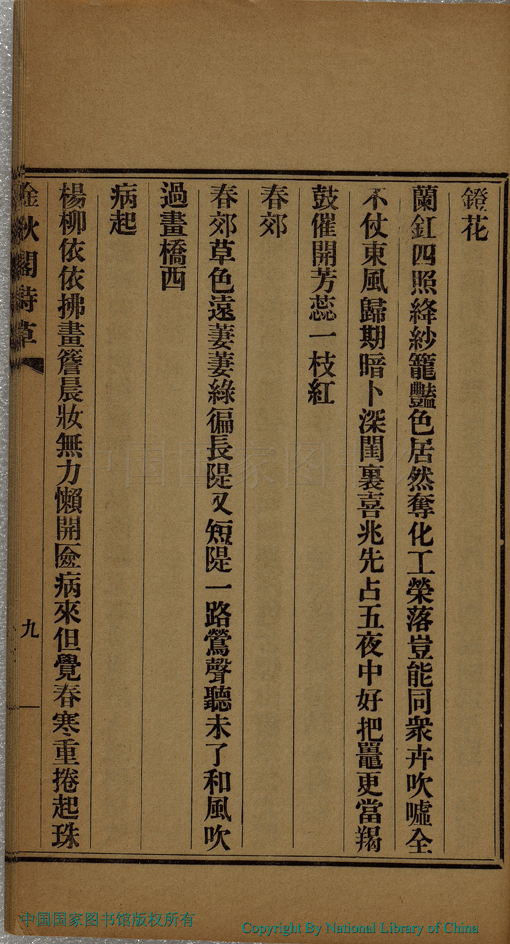 鐙花
蘭釭四照絳紗籠豔色居然奪化工榮落豈能同衆卉吹噓全
不仗東風歸期暗卜深閨裏喜兆先占五夜中好把鼉更當羯
鼓催開芳蕊一枝紅
春郊
春郊草色遠萋萋綠徧長隄又短隄一路鶯聲聽未了和風吹
過畫橋西
病起
楊柳依依拂畫簷晨妝無力懶開匳病來但覺春寒重捲起珠
秋閣詩草
九
中国国家图书馆版权所有
Copyright By National Library of China